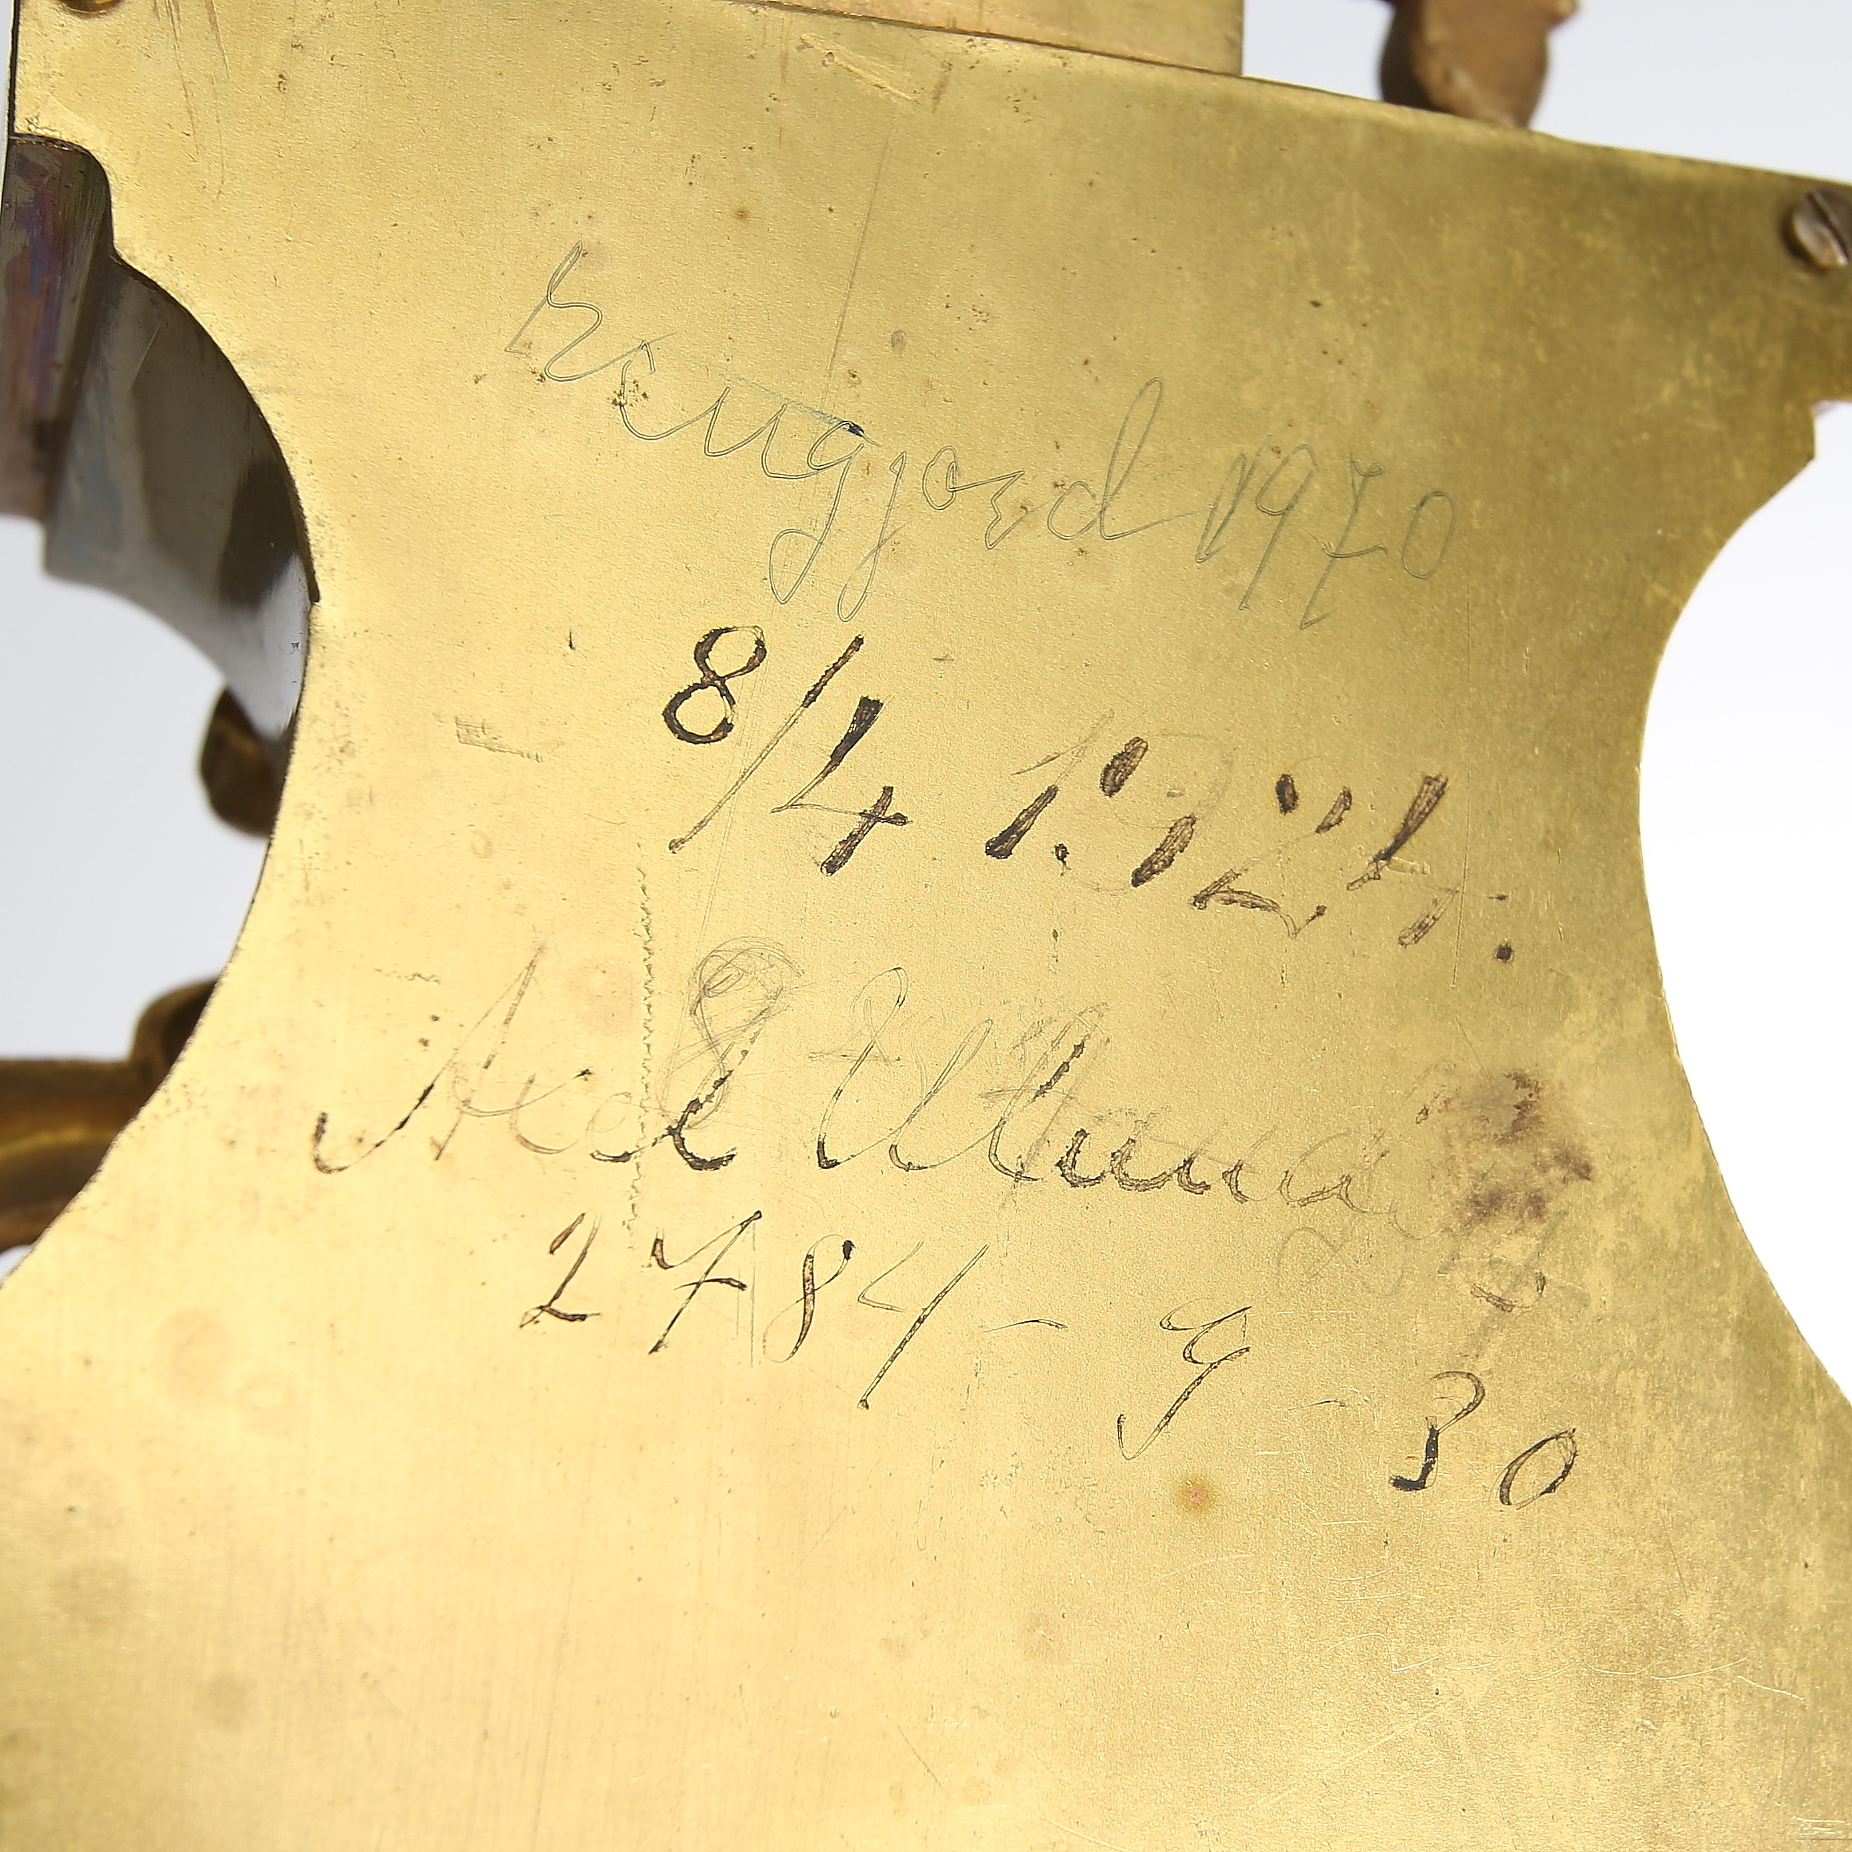 rengjord 1970
8/4 1924.
Axel
2784 - 9 - 30